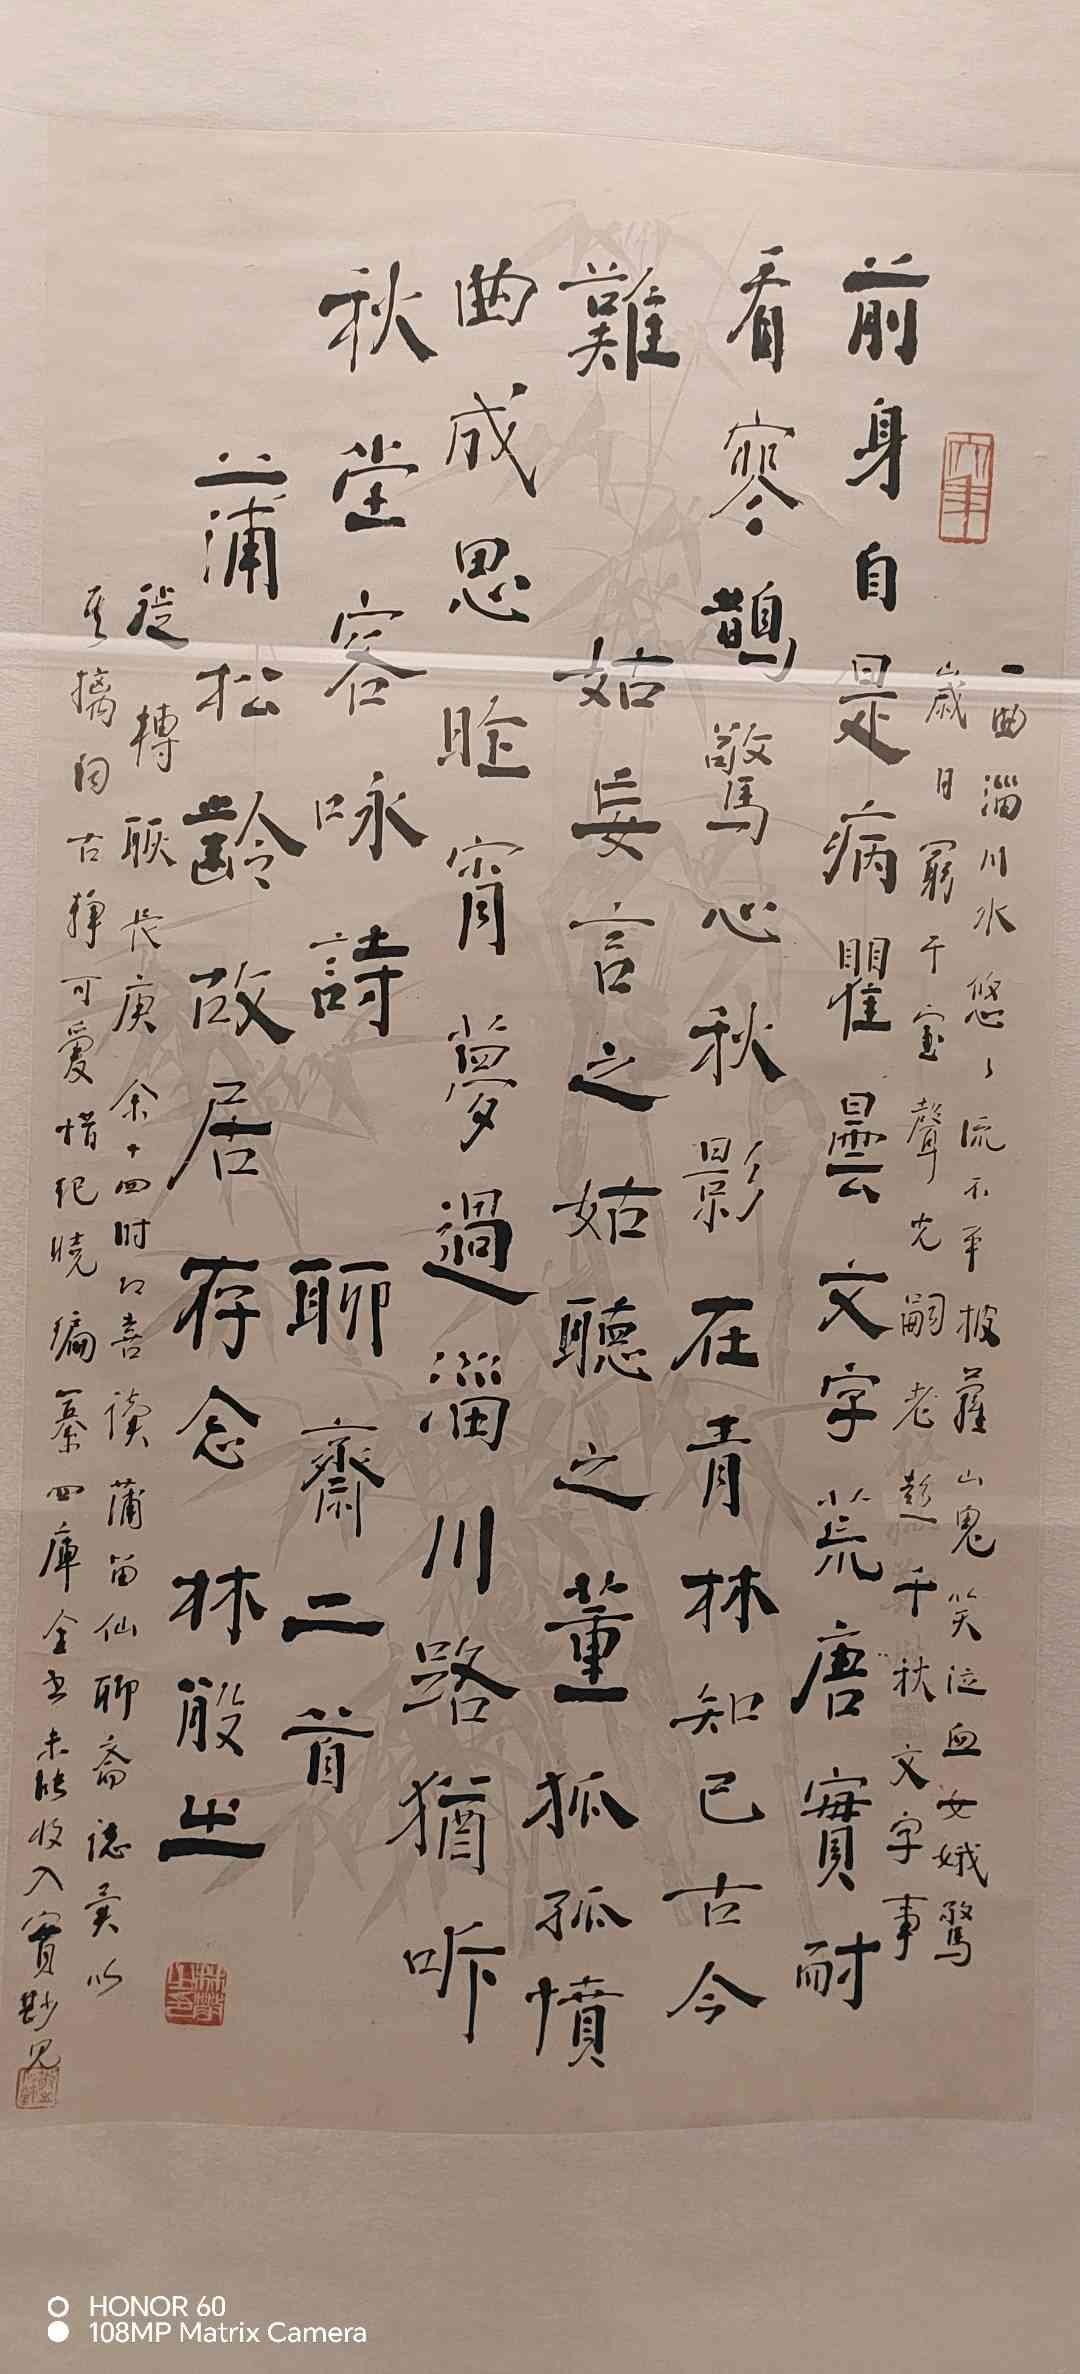 前身自是病瞿曇文字荒唐實耐
看寥鵲驚心秋影在青林知己古今
難姑妄言之姑聽之董狐孤憤
曲成思昨宵夢過淄川路猶聽
秋堂客咏詩聊齋二首
蒲松齡故居存念林散之
一曲淄川水悠々流不平披蘿山鬼笑泣血女娥驚
歲日窮干寶聲光嗣老彭千秋文字事
後轉聯長庚余十四时即喜讀蒲留仙聊齋志異以
其摛詞古艷可愛惜紀曉嵐纂四庫全书未能收入實
HONOR 60
108MP Matrix Camera